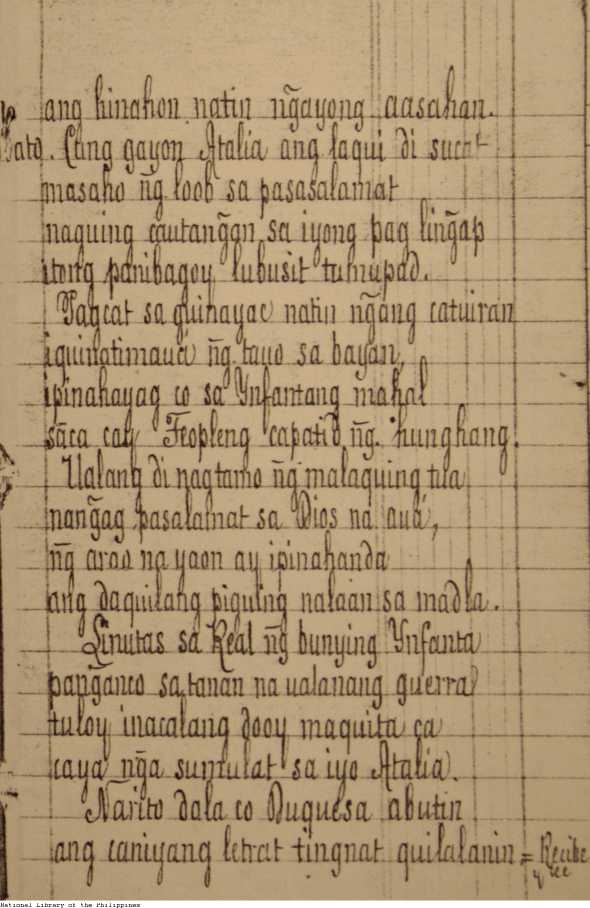 ang hinahon natin ng̃ayong aasahan.
Cung gayon Atalia ang laqui di sucat
masaho ng̃ loob sa pasasalamat
naguing cautang̃an sa iyong pag ling̃ap
itong panibagoy lubusit tumupad.
Pagcat sa guinayac natin ng̃ang catuiran
iquinatimaua ng̃ tauo sa bayan,
ipinahayag co sa Ynfantang mahal
saca cay Teopleng capatid ng̃ hunghang.
Ualang di nagtamo ng̃ malaquing tila
nang̃ag pasalamat sa Dios na auá,
ng̃ arao na yaon ay ipinahanda
ang daquilang piguing nalaan sa madla.
Linutas sa Real ng̃ bunying Ynfanta
pang̃anco sa tanan na ualanang guerra
tuloy inacalang dooy maquita ca
caya ng̃a sumulat sa iyo Atalia.
Narito dala co Duquesa abutin
ang caniyang letrat tingnat quilalanin = Recibe
y lee
National Library of the Philippines